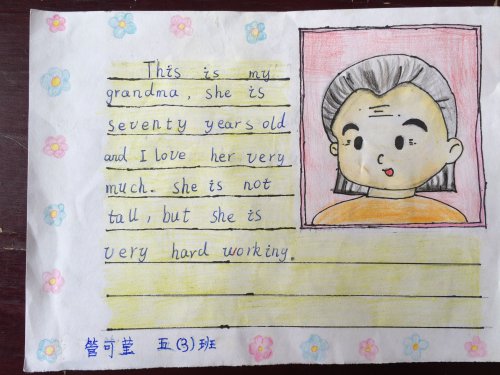 This is my
grandma, she is
seventy years old
and I love her very
much. she is not
tall, but she is
very hard working.
管可莹 五(3)班